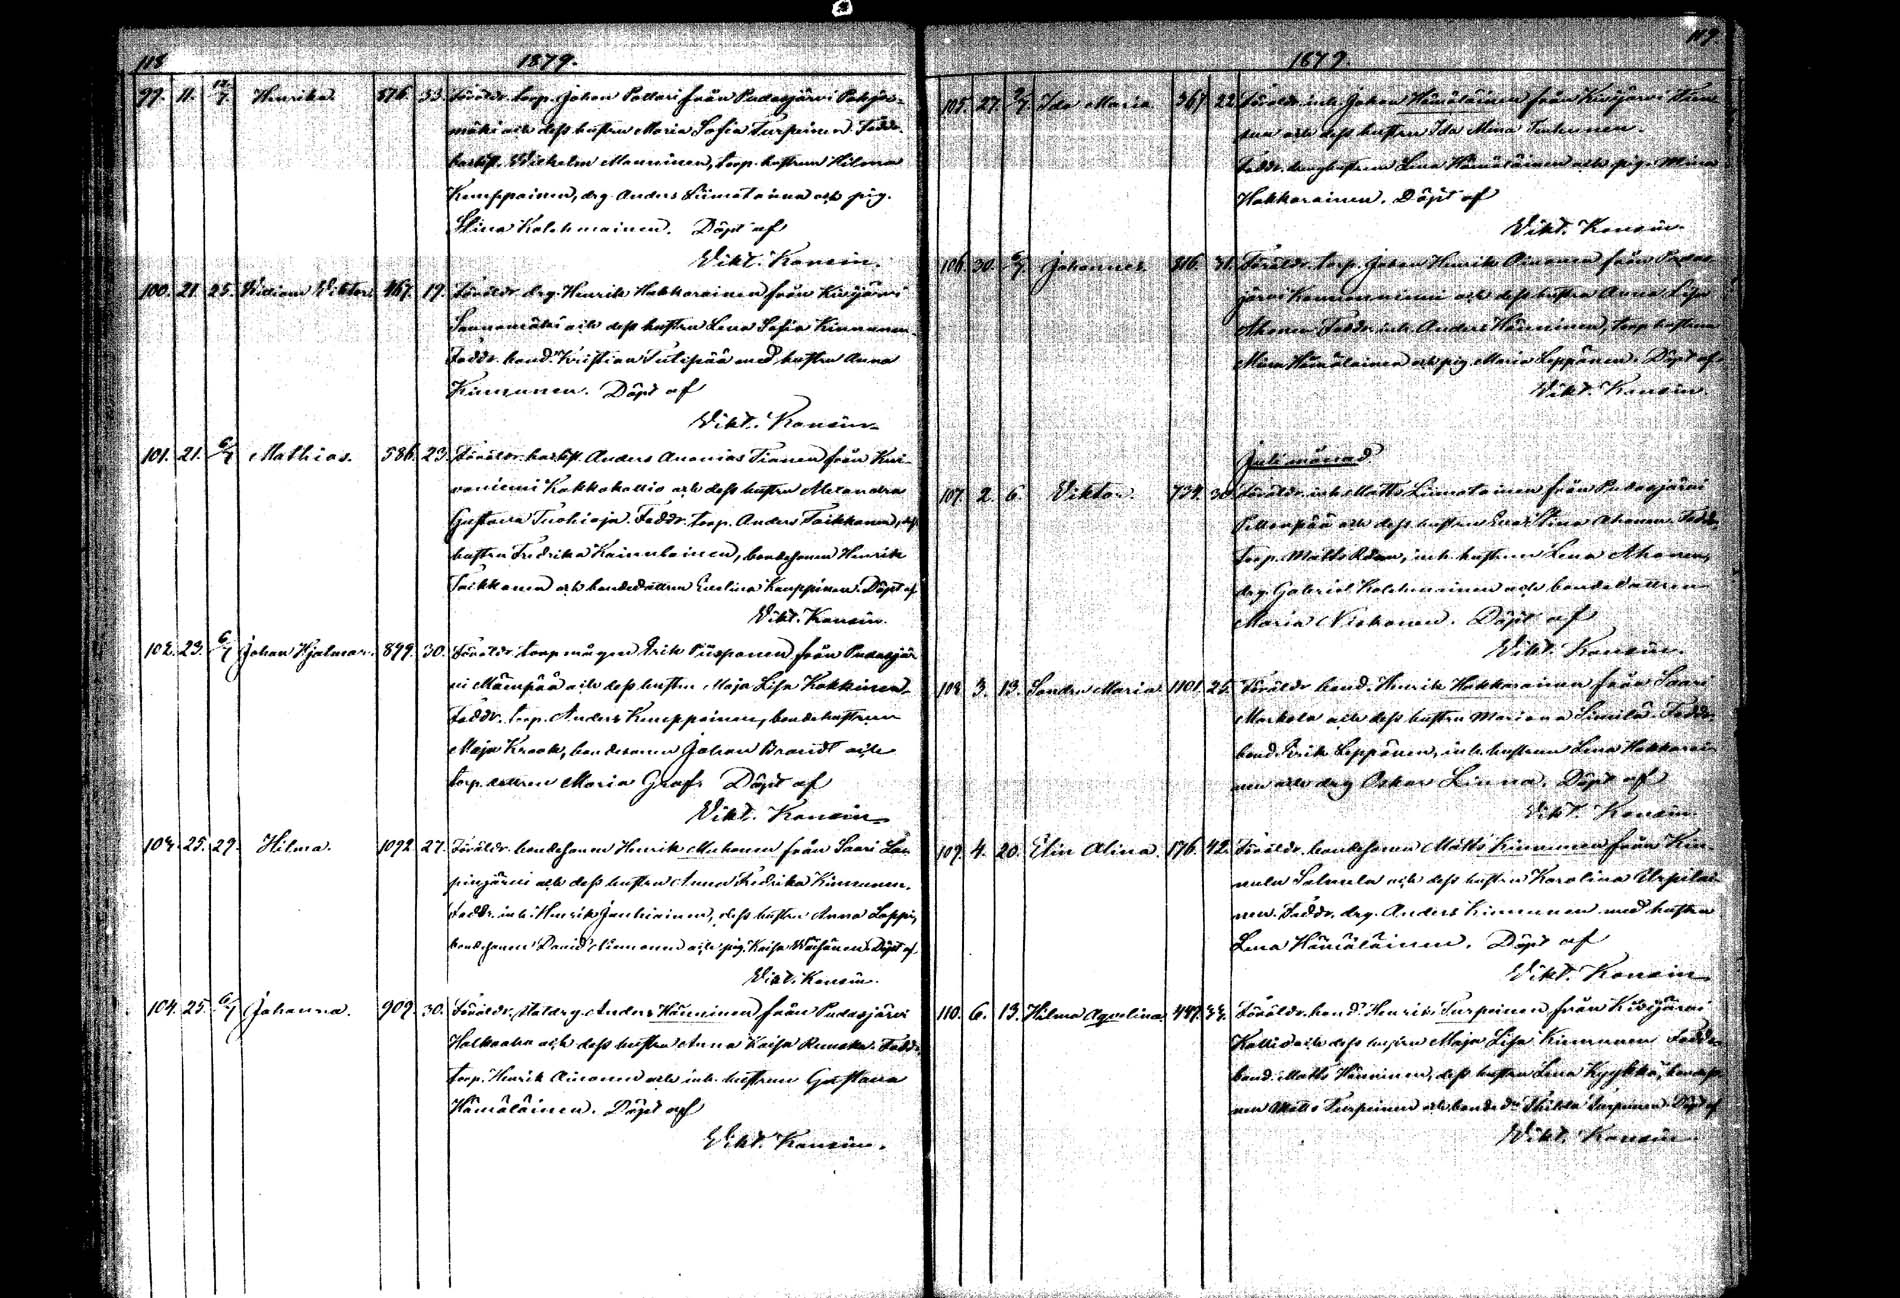 118
1879.
99. 11. 12/7 Henrika. 876. 33. Föräldr. torp. Johan Pollari från Pudasjärvi Pohjos-
mäki och dess hustru Maria Sofia Turpeinen. Fadd.
Wilhelm Manninen, torp. hustrun Hilma
Kemppainen, drg. Anders Liimatainen och pig.
Stina Kolehmainen. Döpt af
Vikt. Konsin.
100. 21. 25. Viktor 467. 19. Föräldr. drg. Henrik Hakkarainen från Kivijärvi
och dess hustru Lena Sofia Kinnunen.
Faddr. bond. Kristian med hustru Anna
Kinnunen. Döpt af
Vikt. Konsin.
101. 21. 6/7 Mathias. 586. 23. Föräldr. Anders Ananias från Kui-
vaniemi Kokkokallio och dess hustru Alexandra
Gustava Tuohioja. Faddr. torp. Anders Taikkonen, dess
hustru Fredrika Kainulainen, bondesonen Henrik
Taikkonen och bondedottren Evelina Kauppinen. Döpt af
Vikt. Konsin.
102. 23. 6/7 Johan Hjalmar. 899. 30. Föräldr. torpmågen Erik Piispanen från Pudasjär
vi och dess hustru Maja Lisa Kokkinen.
Faddr. torp. Anders Kemppainen, bondehustrun
Maja Krook, bondesonen Johan Brandt och
torp. dottren Maria Graf. Döpt af
Vikt. Konsin.
103. 25. 29. Hilma. 1092 27. Föräldr. bondesonen Henrik Muhonen från Saari Lam-
pinjärvi och dess hustru Anna Fredrika Kinnunen.
Faddr. inh. Henrik Janhiainen, dess hustru Anna Leppi,
bondesonen David och pig. Kaisa Väisänen. Döpt af
Vikt. Konsin.
104. 25. 6/7 Johanna. 909. 30. Föräldr. Statdrg. Anders Hänninen från Pudasjärvi
och dess hustru Anna Kaisa Fadd.
torp. Henrik Ainonen och inh. hustrun Gustava
Hämäläinen. Döpt af
Vikt. Konsin.
119.
1879.
105. 27. 7 Ida Maria 367 22. Föräldr. inh. Johan Hämäläinen från Kivijärvi
och dess hustru Ida Mina
Faddr. drenghustrun Lena Hämäläinen och pig. Mina
Hakkarainen. Döpt af
Vikt. Konsin.
106. 30. 6/7 Johannes. 816. 31. Föräldr. torp. Johan Henrik Ainonen från Pudas-
järvi och dess hustru Anna Lisa
Ahonen. Faddr. inh. Anders Hänninen, torp. hustrun
Mina Hämäläinen och pig. Maria Leppänen. Döpt af
Vikt. Konsin.
Juli månad.
107. 2. 6. Viktor. 734. 30. Föräldr. inh. Matts Liimatainen från Pudasjärvi
och dess hustru Eva Stina Ahonen. Fadd.
torp. Matts inh. hustrun Lena Ahonen,
drg. Gabriel Kolehmainen och bondedottren
Maria Niskanen. Döpt af
Vikt. Konsin.
108. 3. 13. Sandra Maria. 1101. 25. Föräldr. bond. Henrik Hakkarainen från Saari
Markola och dess hustru Mariana Similä. Fadd.
bond. Erik Leppänen, inh. hustrun Lena Hakkarai-
nen och drg Oskar Linna. Döpt af
Vikt. Konsin.
109. 4. 20. Elin Alina. 176. 42. Föräldr. bondesonen Matts Kinnunen från Kin-
nula Salmela och dess hustru Karolina Urpilai-
nen. Faddr. drg. Anders Kinnunen med hustru
Lena Hämäläinen. Döpt af
Vikt. Konsin.
110. 6. 13. Hilma Aqvelina. 487. 34. Föräldr. bond. Henrik Turpeinen från Kivijärvi
Kallio och dess hustru Maja Lisa Kinnunen Fadd.
bond. Matts Hänninen, dess hustru Lena Kyykkä, bondeso
nen Matts Turpeinen och bonde dr Thilda Turpeinen. Döpt af
Vikt. Konsin.